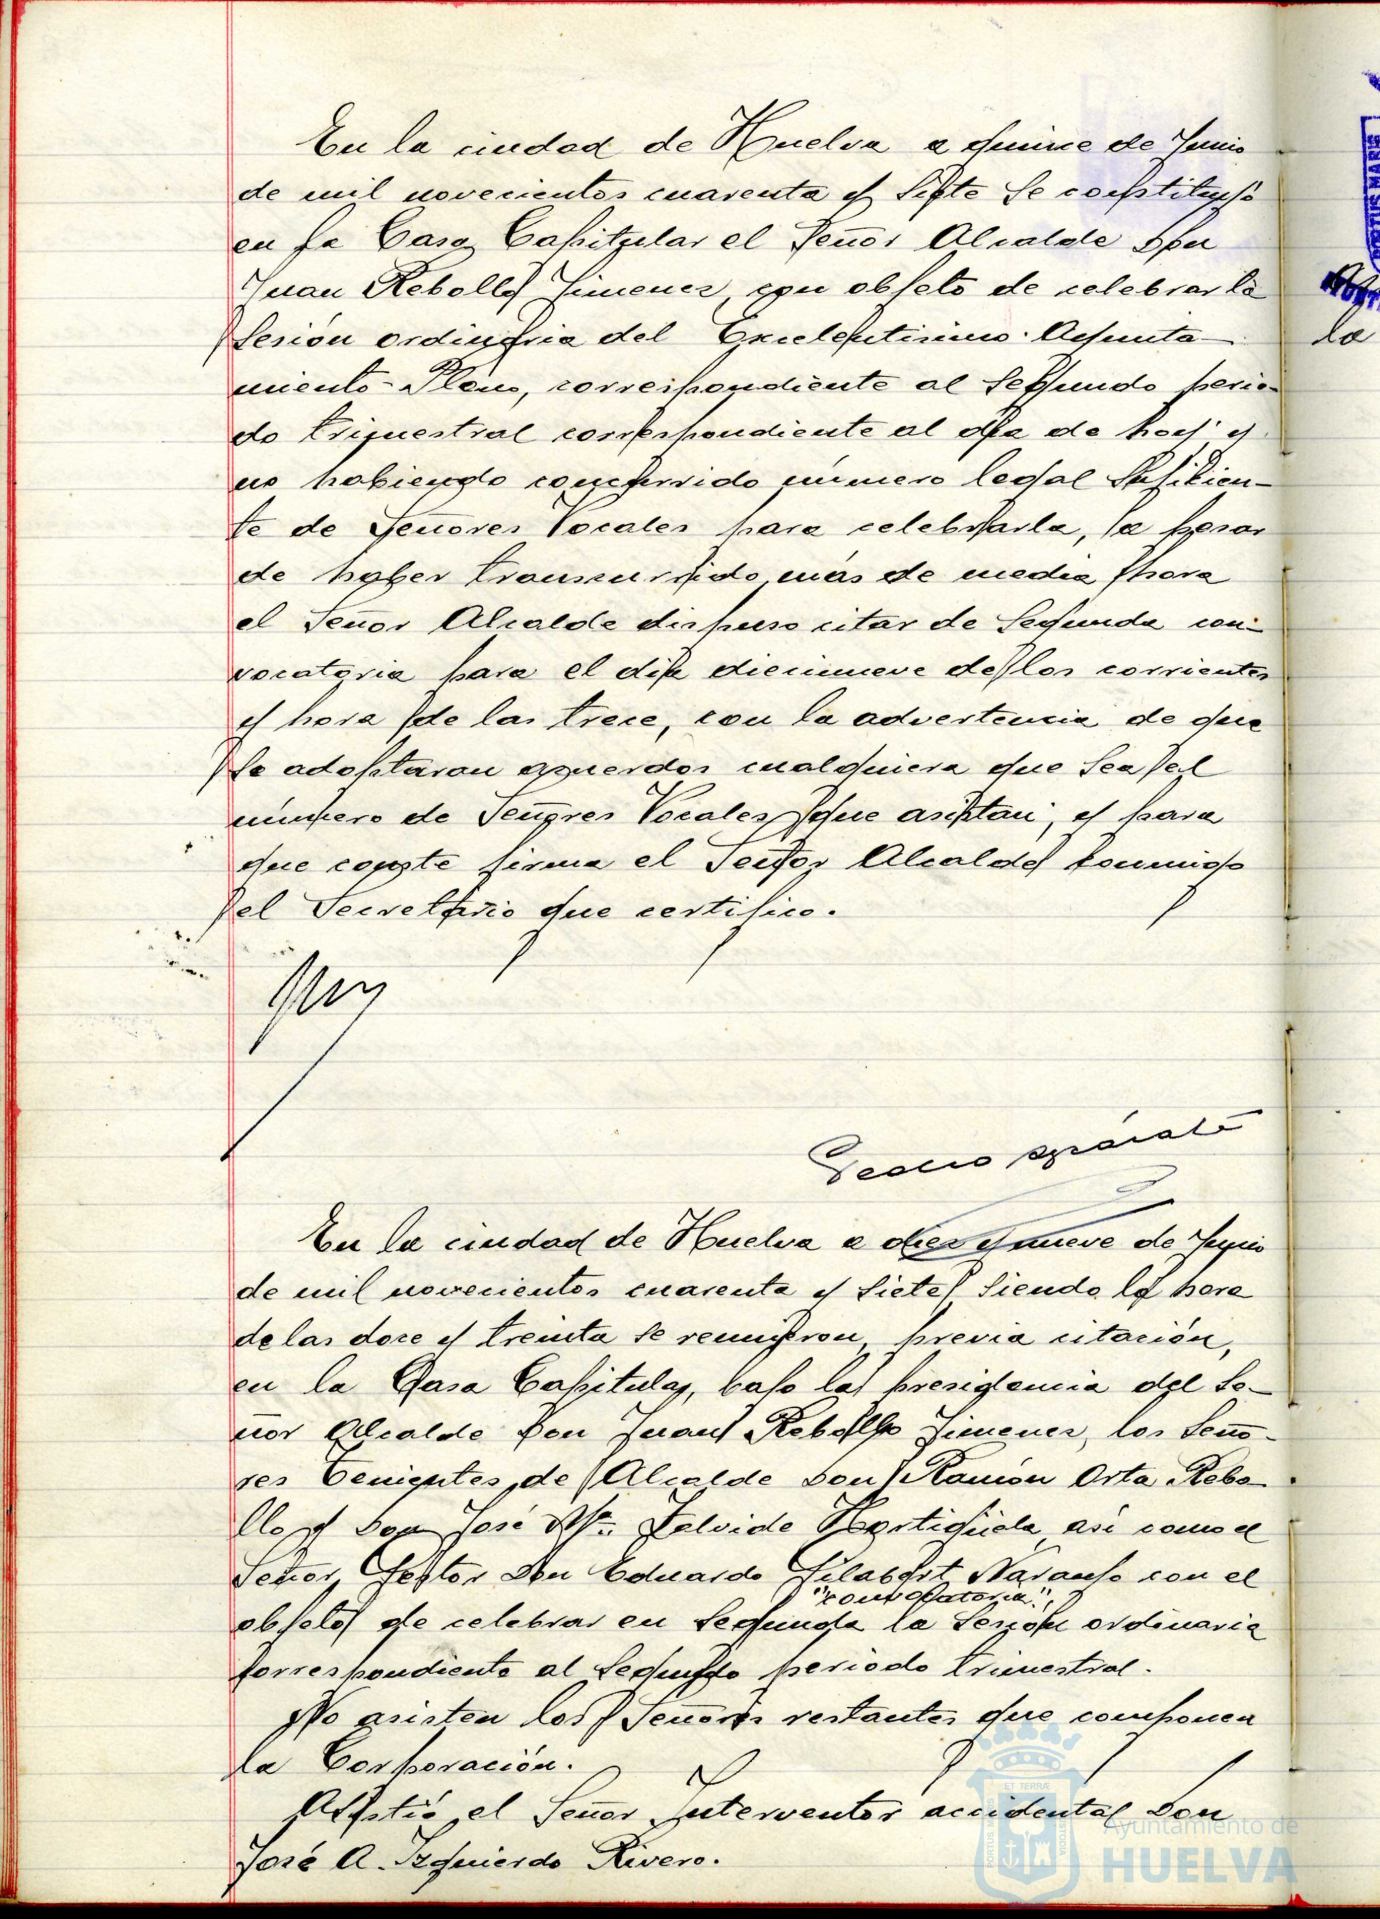 En la ciudad de Huelva a quince de Junio
de mil novecientos cuarenta y siete se constituyó
en la Casa Capitular el Señor Alcalde Don
Juan Rebollo Jimenez, con objeto de celebrar la
sesión ordinaria del Excelentisimo Ayunta-
miento-Pleno, correspondiente al segundo perio-
do trimestral correspondiente al dia de hoy y
no habiendo concurrido número legal suficien-
te de Señores Vocales para celebrarla, a pesar
de haber transcurrido más de media hora
el Señor Alcalde dispuso citar de segunda con-
vocatoria para el dia diecinueve de los corrientes
y hora de las trece, con la advertencia de que
se adoptaran acuerdos cualquiera que sea el
número de Señores Vocales que asistan, y para
que conste firma el Señor Alcalde conmigo
el Secretario que certifico.
Pedro
En la ciudad de Huelva a diez y nueve de Junio
de mil novecientos cuarenta y siete siendo la hora
de las doce y treinta se reunieron, previa citación,
en la Casa Capitular, bajo la presidencia del Se-
ñor Alcalde Don Juan Rebollo Jimenez, los Seño-
res Tenientes de Alcalde Don Ramón Orta Rebo-
llo y Don José Mª. Zalvide Hortigüela, asi como el
Señor Gestor Don Eduardo Filabert Naranjo con el
"convocatoria"
objeto de celebrar en segunda la sesión ordinaria
correspondiente al segundo periodo trimestral.
No asisten los Señores restantes que componen
la Corporación.
Asistió el Señor Interventor accidental Don
José A. Izquierdo Rivero.
PORTUS MARIS
la
ET TERRÆ
PORTUS MARIS
CUSTODIA
Ayuntamiento de
HUELVA